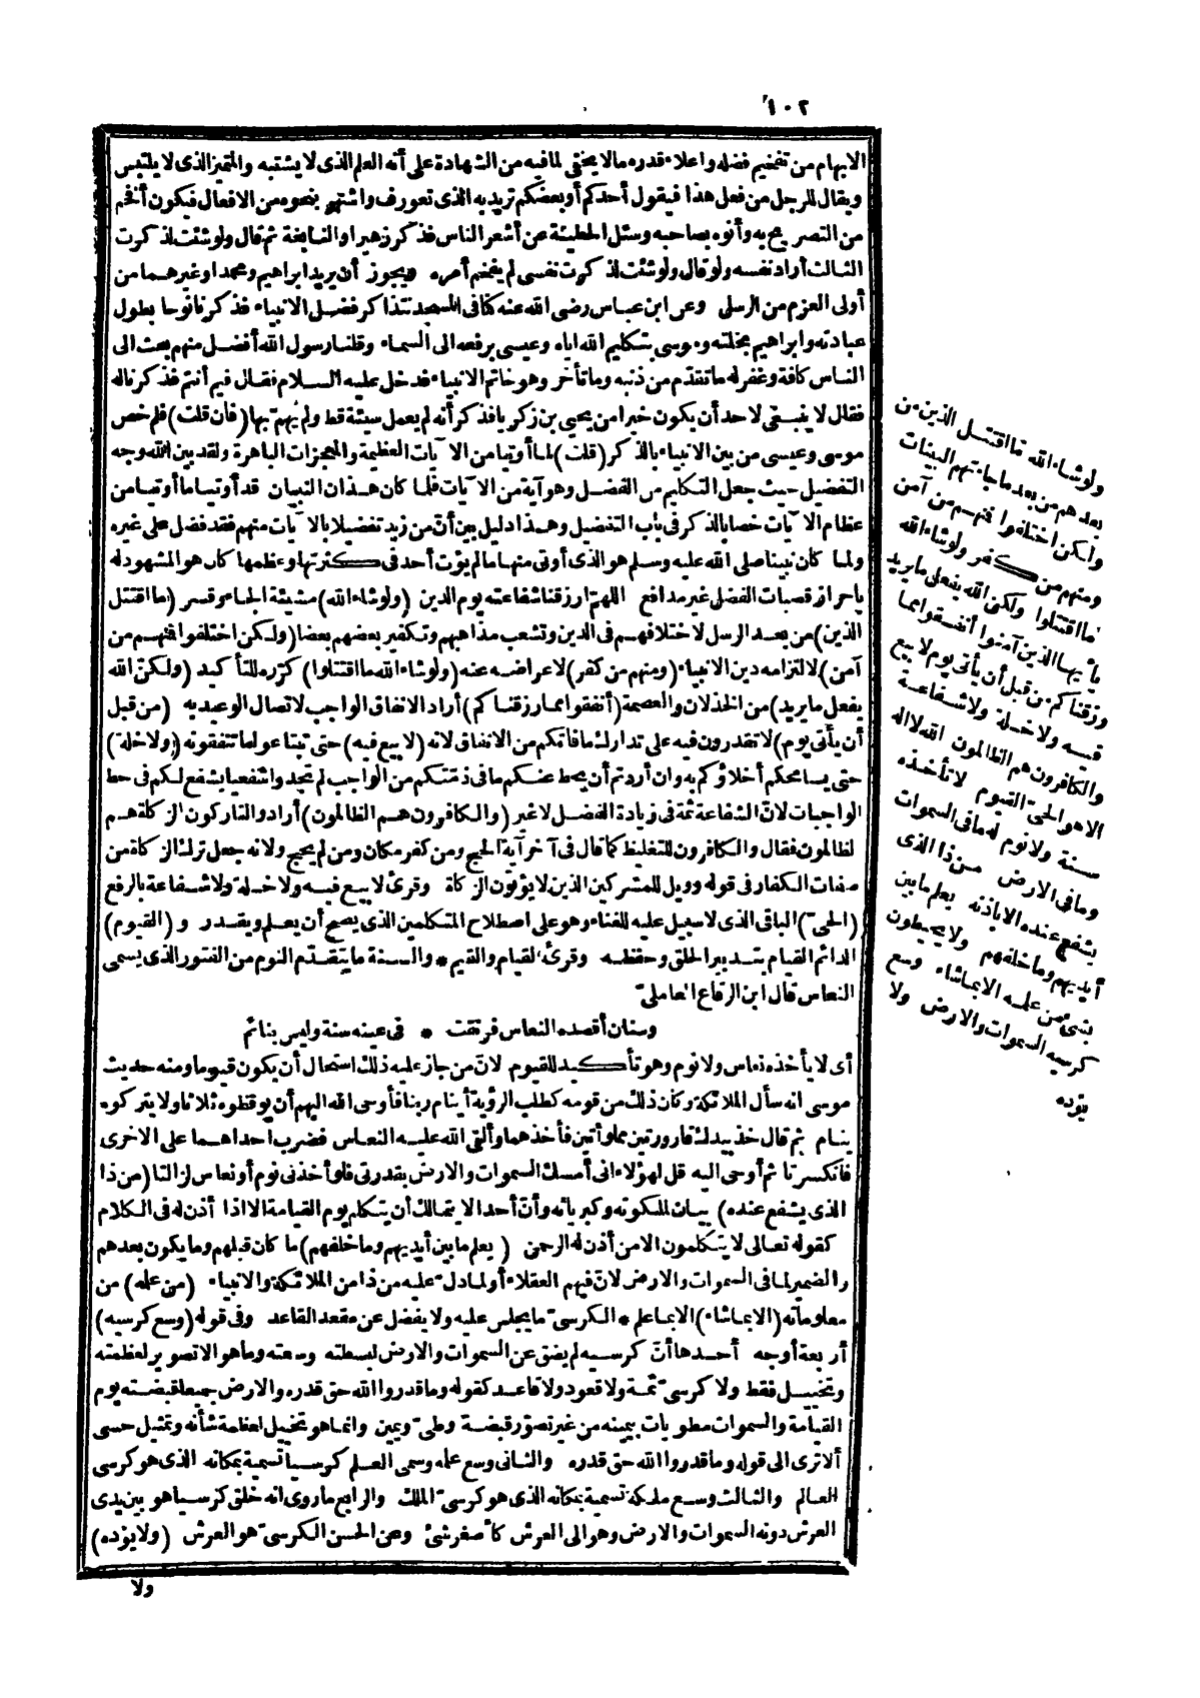 ١٠٢
الابهام من تفخيم فضله واعلاء قدره مالا يخفى لما فيه من الشهادة على أنه العلم الذى لا يشتبه والمتميز الذى لا يلتبس
ويقال للرجل من فعل هذا فيقول أحدكم أو بعضكم تريد به الذى تعورف واشتهر بنحوه من الافعال فيكون أفخم
من التصريح به وأنوه بصاحبه وسئل الحطيئة عن أشعر الناس فذكر زهيرا والنابغة ثم قال ولو شئت لذكرت
الثالث أراد نفسه ولو قال ولو شئت لذكرت نفسى لم يفخم أمره ويجوز أن يريد ابراهيم ومحمدا وغيرهما من
أولى العزم من الرسل وعن ابن عباس رضى الله عنه كنا فى المسجد نتذاكر فضل الانبياء فذكرنا نوحا بطول
عبادته وابراهيم بخلته وموسى بتكليم الله اياه وعيسى برفعه الى السماء وقلنا رسول الله أفضل منهم بعث الى
الناس كافة وغفر له ما تقدّم من ذنبه وما تأخر وهو خاتم الانبياء فدخل عليه السلام فقال فيم أنتم فذكرنا له
فقال لا ينبغى لاحد أن يكون خيرا من يحيى بن زكريا فذكر أنه لم يعمل سيئة قط ولم يهمّ بها (فان قلت) فلم خص
موسى وعيسى من بين الانبياء بالذكر (قلت) لما أوتيا من الآيات العظيمة والمعجزات الباهرة ولقد بين الله وجه
التفضيل حيث جعل التكليم من الفضل وهو آية من الآيات فلما كان هذان النبيان قد أوتيا ما أوتيا من
عظام الآيات خصا بالذكر فى باب التفضيل وهذا دليل بين أنّ من زيد تفضيلا بالآيات منهم فقد فضل على غيره
ولما كان نبينا صلى الله عليه وسلم هو الذى أوتى منها ما لم يؤت أحد فى كثرتها وعظمها كان هو المشهود له
باحراز قصبات الفضل غير مدافع اللهمّ ارزقنا شفاعته يوم الدين (ولو شاء الله) مشيئة الجاء وقسر (ما اقتتل
الذين) من بعد الرسل لاختلافهم فى الدين وتشعب مذاهبهم وتكفير بعضهم بعضا (ولكن اختلفوا فمنهم من
آمن) لالتزامه دين الانبياء (ومنهم من كفر) لاعراضه عنه (ولو شاء الله ما اقتتلوا) كرّره للتأكيد (ولكنّ الله
يفعل ما يريد) من الخذلان والعصمة (أنفقوا مما رزقناكم) أراد الانفاق الواجب لاتصال الوعيد به (من قبل
أن يأتى يوم) لا تقدرون فيه على تدارك ما فاتكم من الانفاق لانه (لا بيع فيه) حتى تبتاعوا ما تنفقونه (ولا خلة)
حتى يسامحكم أخلاؤكم به وان أردتم أن يحط عنكم ما فى ذمّتكم من الواجب لم تجدوا شفيعا يشفع لكم فى حط
الواجبات لانّ الشفاعة ثمة فى زيادة الفضل لا غير (والكافرون هم الظالمون) أراد والتاركون الزكاة هم
الظالمون فقال والكافرون للتغليظ كما قال فى آخر آية الحج ومن كفر مكان ومن لم يحج ولانه جعل ترك الزكاة من
صفات الكفار فى قوله وويل للمشركين الذين لا يؤتون الزكاة وقرئ لا بيع فيه ولا خلة ولا شفاعة بالرفع
(الحىّ) الباقى الذى لا سبيل عليه للفناء وهو على اصطلاح المتكلمين الذى يصح أن يعلم ويقدر و (القيوم)
الدائم القيام بتدبير الخلق وحفظه وقرئ القيام والقيم * والسنة ما يتقدّم النوم من الفتور الذى يسمى
النعاس قال ابن الرقاع العاملىّ
وسنان أقصده النعاس فرنقت * فى عينه سنة وليس بنائم
أى لا يأخذه نعاس ولا نوم وهو تأكيد للقيوم لانّ من جاز عليه ذلك استحال أن يكون قيوما ومنه حديث
موسى انه سأل الملائكة وكان ذلك من قومه كطلب الرؤية أينام ربنا فأوحى الله اليهم أن يوقظوه ثلاثا ولا يتركوه
ينام ثم قال خذ بيدك قارورتين مملوأتين فأخذهما وألقى الله عليه النعاس فضرب احداهما على الاخرى
فانكسرتا ثم أوحى اليه قل لهؤلاء انى أمسك السموات والارض بقدرتى فلو أخذنى نوم أو نعاس لزالتا (من ذا
الذى يشفع عنده) بيان لملكوته وكبريائه وأنّ أحدا لا يتمالك أن يتكلم يوم القيامة الا اذا أذن له فى الكلام
كقوله تعالى لا يتكلمون الا من أذن له الرحمن (يعلم ما بين أيديهم وما خلفهم) ما كان قبلهم وما يكون بعدهم
والضمير لما فى السموات والارض لانّ فيهم العقلاء أو لما دلّ عليه من ذا من الملائكة والانبياء (من علمه) من
معلوماته (الا بما شاء) الا بما علم * الكرسىّ ما يجلس عليه ولا يفضل عن مقعد القاعد وفى قوله (وسع كرسيه)
أربعة أوجه أحدها أنّ كرسيه لم يضق عن السموات والارض لبسطته وسعته وما هو الا تصوير لعظمته
وتخييل فقط ولا كرسىّ ثمة ولا قعود ولا قاعد كقوله وما قدروا الله حق قدره والارض جميعا قبضته يوم
القيامة والسموات مطويات بيمينه من غير تصوّر قبضة وطىّ ويمين وانما هو تخييل لعظمة شأنه وتمثيل حسى
ألا ترى الى قوله وما قدروا الله حق قدره والثانى وسع علمه وسمى العلم كرسيا تسمية بمكانه الذى هو كرسى
العالم والثالث وسع ملكه تسمية بمكانه الذى هو كرسىّ الملك والرابع ما روى انه خلق كرسيا هو بين يدى
العرش دونه السموات والارض وهو الى العرش كأصغر شئ وعن الحسن الكرسىّ هو العرش (ولا يؤده)
ولا
ولو شاء الله ما اقتتل الذين من
بعدهم من بعد ما جاءتهم البينات
ولكن اختلفوا فمنهم من آمن
ومنهم من كفر ولو شاء الله
ما اقتتلوا ولكن الله يفعل ما يريد
يأيها الذين آمنوا أنفقوا مما
رزقناكم من قبل أن يأتى يوم لا بيع
فيه ولا خلة ولا شفاعة
والكافرون هم الظالمون الله لا اله
الا هو الحىّ القيوم لا تأخذه
سنة ولا نوم له ما فى السموات
وما فى الارض من ذا الذى
يشفع عنده الا باذنه يعلم ما بين
أيديهم وما خلفهم ولا يحيطون
بشئ من علمه الا بما شاء وسع
كرسيه السموات والارض ولا
يؤده